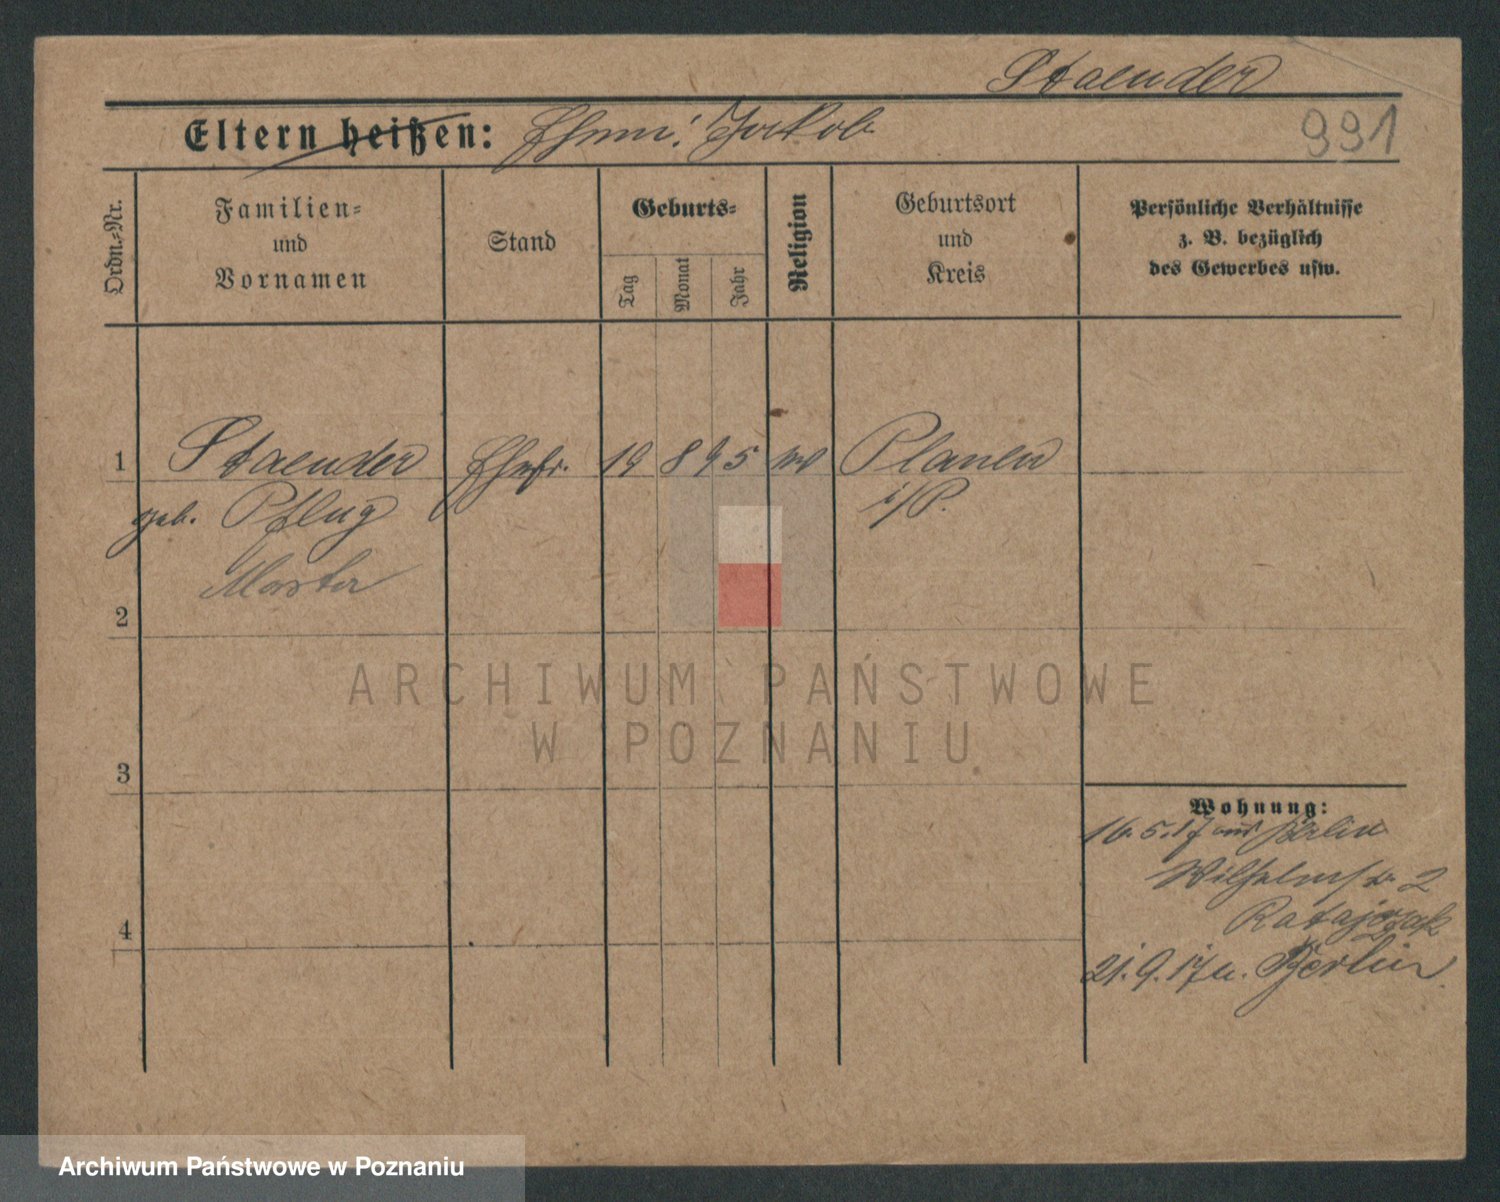 Staender
Eltern heißen: Ehem: Jakob
991
Ordn.-Nr.
Familien-
und
Vornamen
Stand
Geburts-
Tag
Monat
Jahr
Religion
Geburtsort
und
Kreis
Persönliche Verhältnisse
z. B. bezüglich
des Gewerbes usw.
1 Staender Ehefr. 19 8 95
geb. Pflug
i/P.
2
3
4
Wohnung:
16.5.17 Berlin
Wilhelmstr. 2
Ratajczak
21.9.17 n. Berlin
ARCHIWUM PAŃSTWOWE
W POZNANIU
Archiwum Państwowe w Poznaniu